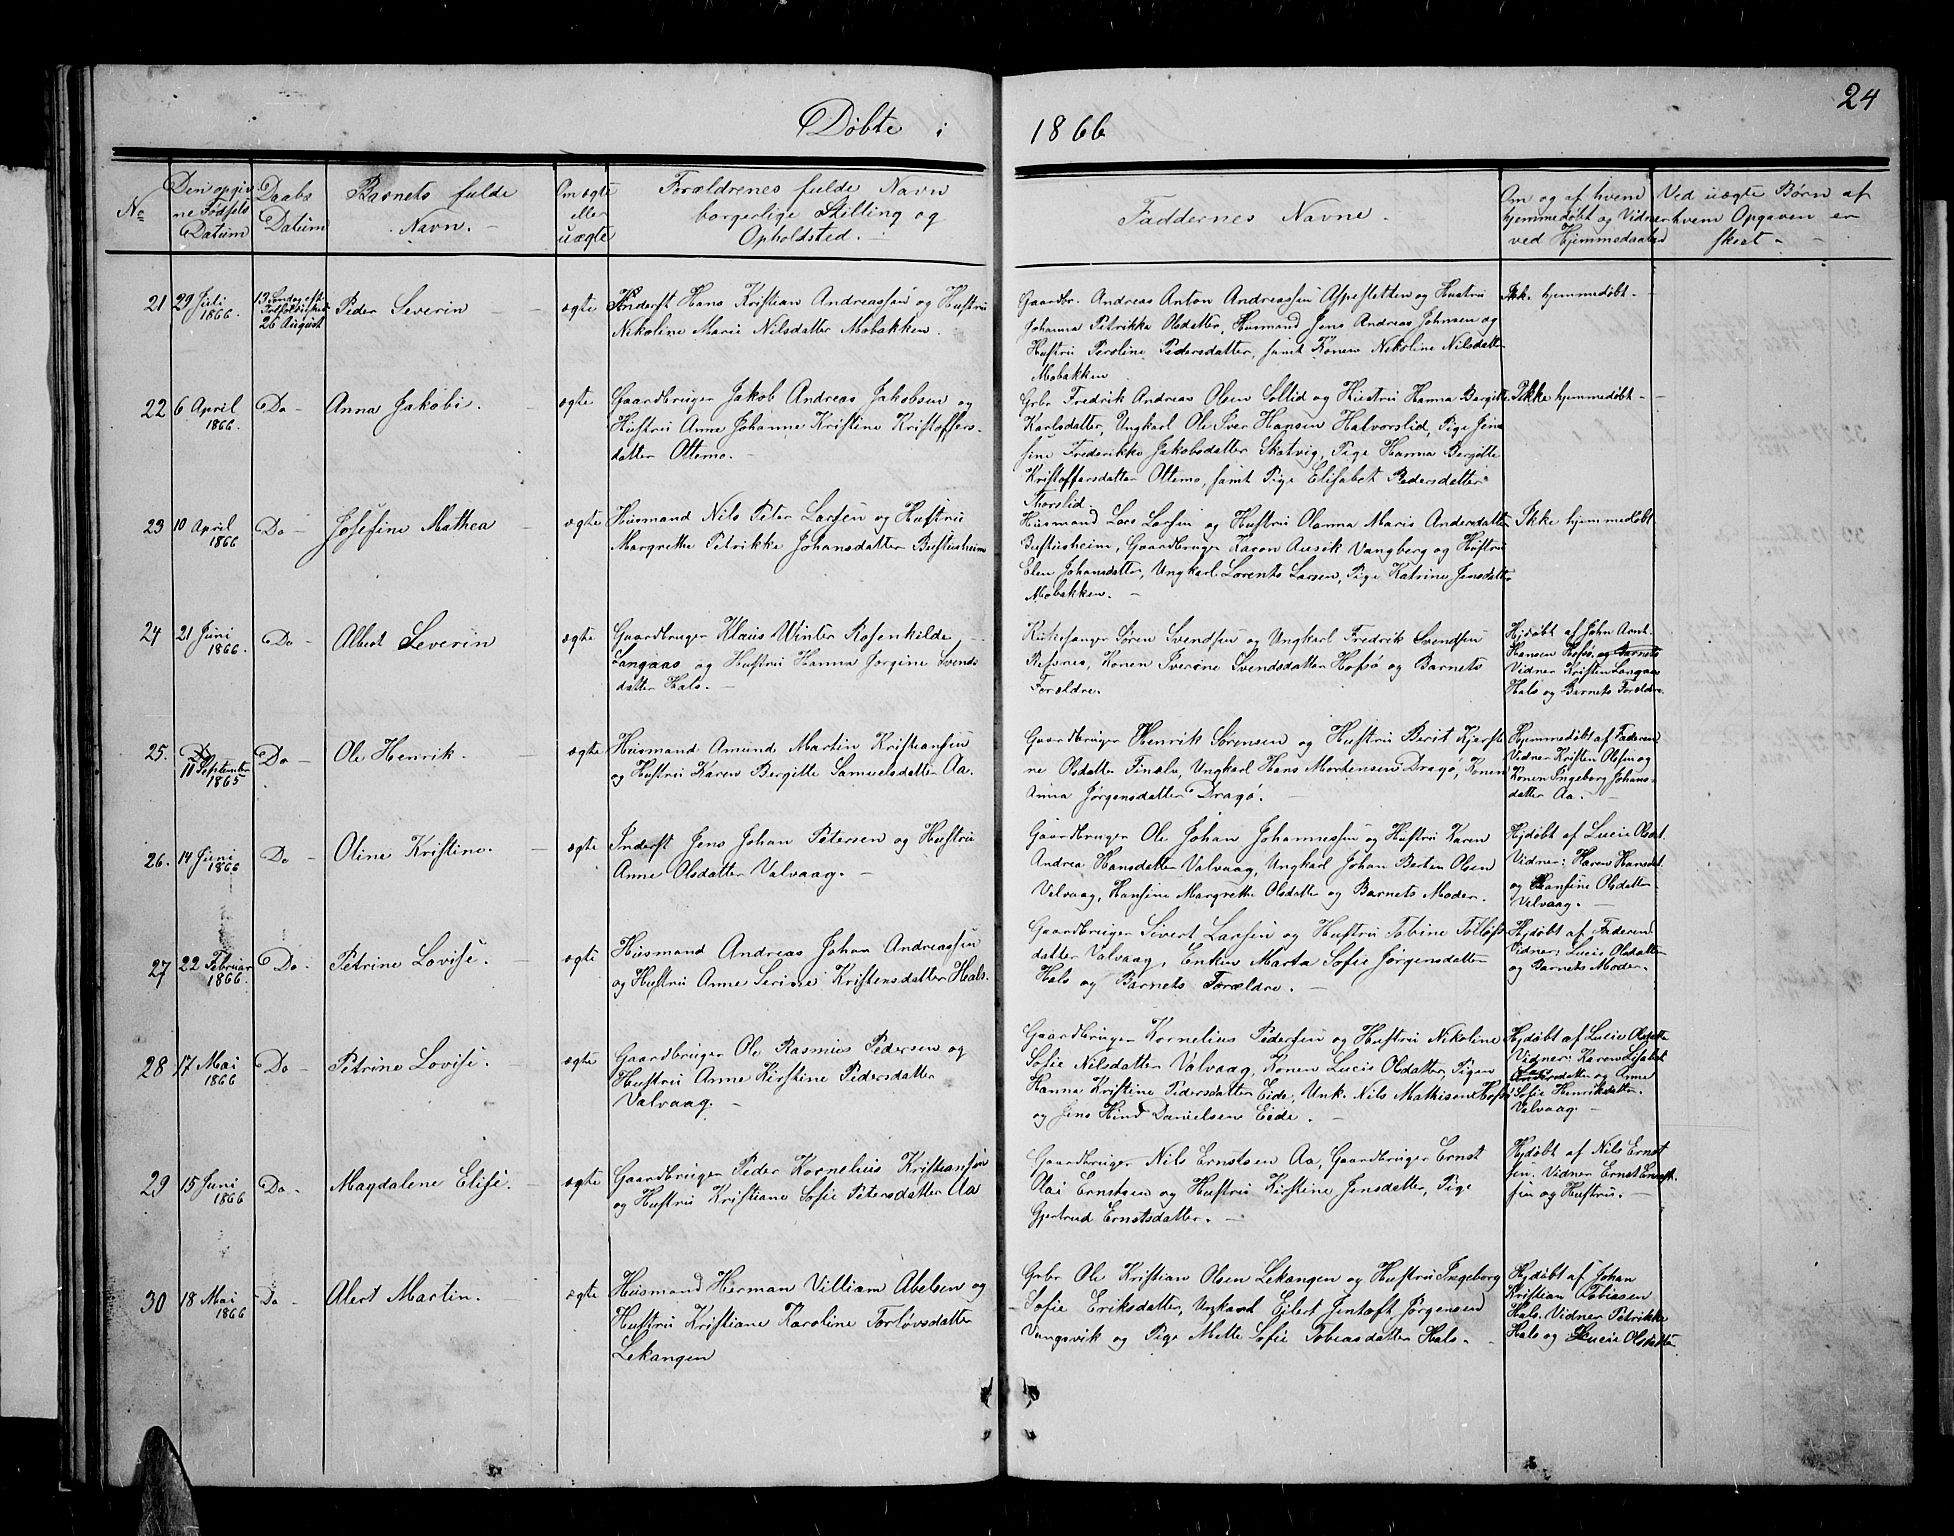 24
Døbte i 1866
No
Den opgiv
ne Fødsels
Datum
Daabs
Datum
Barnets fulde
Navn.
Om ægte
eller
uægte
Forældrenes fulde Navn
borgerlige Stilling og
Opholdsted.
Faddernes Navne.
Om og af hvem
hjemmedøbt og Vidner
ved Hjemmedaabed
Ved uægte Børn af
hvem Opgaven er
skeet
21
29 Juli
1866.
13 Søndag eft.
26 August
Peder Severin
ægte
Inderst Hans Kristian Andreassen og Hustru
Nikoline Marie Nilsdatter Mobakken.
Gaardbr. Andreas Anton Andreassen Aspesletten og Hustru
Johanna Petrikke Olsdatter, Husmand Jens Andreas Johnsen og
Hustru Peroline Pedersdatter, samt Konen Nikoline Nilsdatte
Mobakken
Ikke hjemmedøbt
22
6 April
1866.
Do
Anna Jakobi.
ægte
Gaardbruger Jakob Andreas Jakobsen og
Hustru Anne Johanne Kristine Kristoffers-
datter Ottemo.
Grbr Fredrik Andreas Olsen Sollid og Hustru Hanna Bergitte
Karlsdatter, Ungkarl Ole Iver Hansen Halvorslid, Pige Jen
sine Frederikke Jakobsdatter Skatvig, Pige Hanna Bergitte
Kristoffersdatter Ottemo, samt Pige Elisabet Pedersdatter
Storslid.
Ikke hjemmedøbt
23
10 April
1866
Do
Josefine Mathea
ægte
Husmand Nils Peter Larsen og Hustru
Margrethe Petrikke Johansdatter Buftusheim
Husmand Lars Larsen og Hustru Olanna Maris Andersdatter
Buftusheim, Gaardbruger Karon Ausik Vangberg og Hustru
Elen Johansdatter, Ungkarl Lorents Larsen, Pige Katrine Jensdatter
Mobakken.
Ikke hjemmedøbt
24
21 Juni
1866.
Do
Albert Severin
ægte
Gaardbruger Klaus Winter Rosenkilde
Langaas og Hustru Hanna Jørgine Svends
datter Hals.
Kirkesanger Søren Svendsen og Ungkarl Fredrik Svendsen
Refsnes, Konen Iverine Svendsdatter Hofsø og Barnets
Forældre.
Hjdøbt af John Arnt
Hansen Hofsø. og Barnets
Vidner Kristen Langaas
Hals og Barnets Forældre.
25.
11 September
1865
Do
Ole Henrik.
ægte
Husmand Amund Martin Kristiansen
og Hustru Karen Bergitte Samuelsdatter Aa.
Gaardbruger Henrik Sørensen og Hustru Berit Kjersti
ne Olsdatter Finelv, Ungkarl Hans Mortensen Dragø, Konen
Anna Jørgensdatter Dragø.
Hjemmedøbt af Faderen
Vidner Kristen Olsen og
Konen Ingeborg Johans-
datter Aa.
26.
14 Juni
1866
Do
Oline Kristine.
ægte
Inderst Jens Johan Petersen og Hustru
Anne Olsdatter Valvaag.
Gaardbruger Ole Johan Johannessen og Hustru Karen
Andrea Hansdatter Valvaag, Ungkarl Johan Berten Olsen
Valvaag, Hansine Margrethe Olsdatter og Barnets Moder.
Hjdøbt af Lucie Olsdat.
Vidner: Karen Hansdat.
og Hansine Olsdatter
Valvaag.
27
22 Februar
1866.
Do.
Petrine Lovise.
ægte
Husmand Andreas Johan Andreassen
og Hustru Anne Serine Kristensdatter Hals.
Gaardbruger Sivert Larsen og Hustru Tobine Tollefs
datter Valvaag, Enken Marta Sofie Jørgensdatter
Hals og Barnets Forældre.
Hjdøbt af Faderen
Vidner: Lucie Olsdatter
og Barnets Moder.
28
17 Mai
1866
Do
Petrine Lovise.
ægte
Gaardbruger Ole Rasmus Pedersen og
Hustru Anne Kirstine Pedersdatter
Valvaag.
Gaardbruger Kornelius Pedersen og Hustru Nikoline
Sofie Nilsdatter Valvaag, Konen Lucie Olsdatter, Pigen
Hanna Kristine Pedersdatter Eide, Unk. Nils Mathisen Hofsø
og Jens Hind Danielsen Eide.
Hjdøbt af Lucie Olsdatte
Vidner: Karen Lisabet
datter og Anne
Sofie Henriksdatter
Valvaag.
29
15 Juni
1866
Do.
Magdalene Elise.
ægte
Gaardbruger Peder Kornelius Kristiansen
og Hustru Kristiane Sofie Petersdatter Aa
Gaardbruger Nils Ernstsen Aa, Gaardbruger Ernst
Olai Ernstsen og Hustru Kirstine Jensdatter, Pige
Gjertrud Ernstsdatter.
Hjdøbt af Nils Ernst
sen. Vidner Ernst Ernst
sen og Hustru.
30
18 Mai
1866
Do.
Alert Martin.
ægte
Husmand Herman Villiam Abelsen og
Hustru Kristiane Karoline Torløvsdatter
Lekangen
Grbr Ole Kristian Olsen Lekangen og Hustru Ingeborg
Sofie Eriksdatter, Ungkarl Eilert Jentoft Jørgensen
Vangsvik og Pige Mette Sofie Tobiasdatter Hals.
Hjdøbt af Johan
Kristian Tobiasen
Hals. Vidner Petrikke
Hals og Lucie Olsdatter